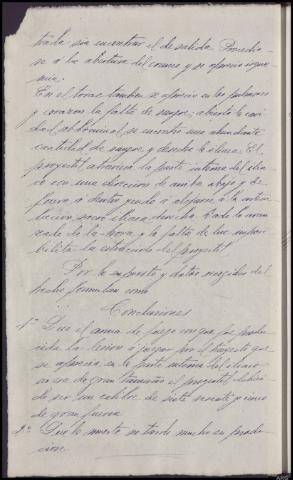 trada sin encontrar el de salida. Procedien
se á la abertura del craneo y se aprecia isque
mia.
En el torax tambien se aprecia en los pulmones
y corazon la falta de sangre; abierta la cavi
dad abdominal se encontró una abundante
cantidad de sangre, y desecha la iliaca. El
proyectil atraviesa la parte interna del iliaco
con una direccion de arriba abajo y de
fuera á dentro yendo á alojarse á la articu
lacion sacro iliaca derecha. Dado lo avan
zado de la hora y la falta de luz imposi
bilita la extraccion del proyectil
Por lo expuesto y datos recogidos del
hecho formulan como
Conclusiones
1ª Que el arma de fuego con que fué produ
cida la lesion á juzgar por el trayecto que
se aprecia en la parte interna del iliaco
era de gran tamaño el proyectil debien
do ser un calibre de siete sesenta y cinco
de gran fuerza
2ª Que la muerte no tardó mucho en produ
cirse.